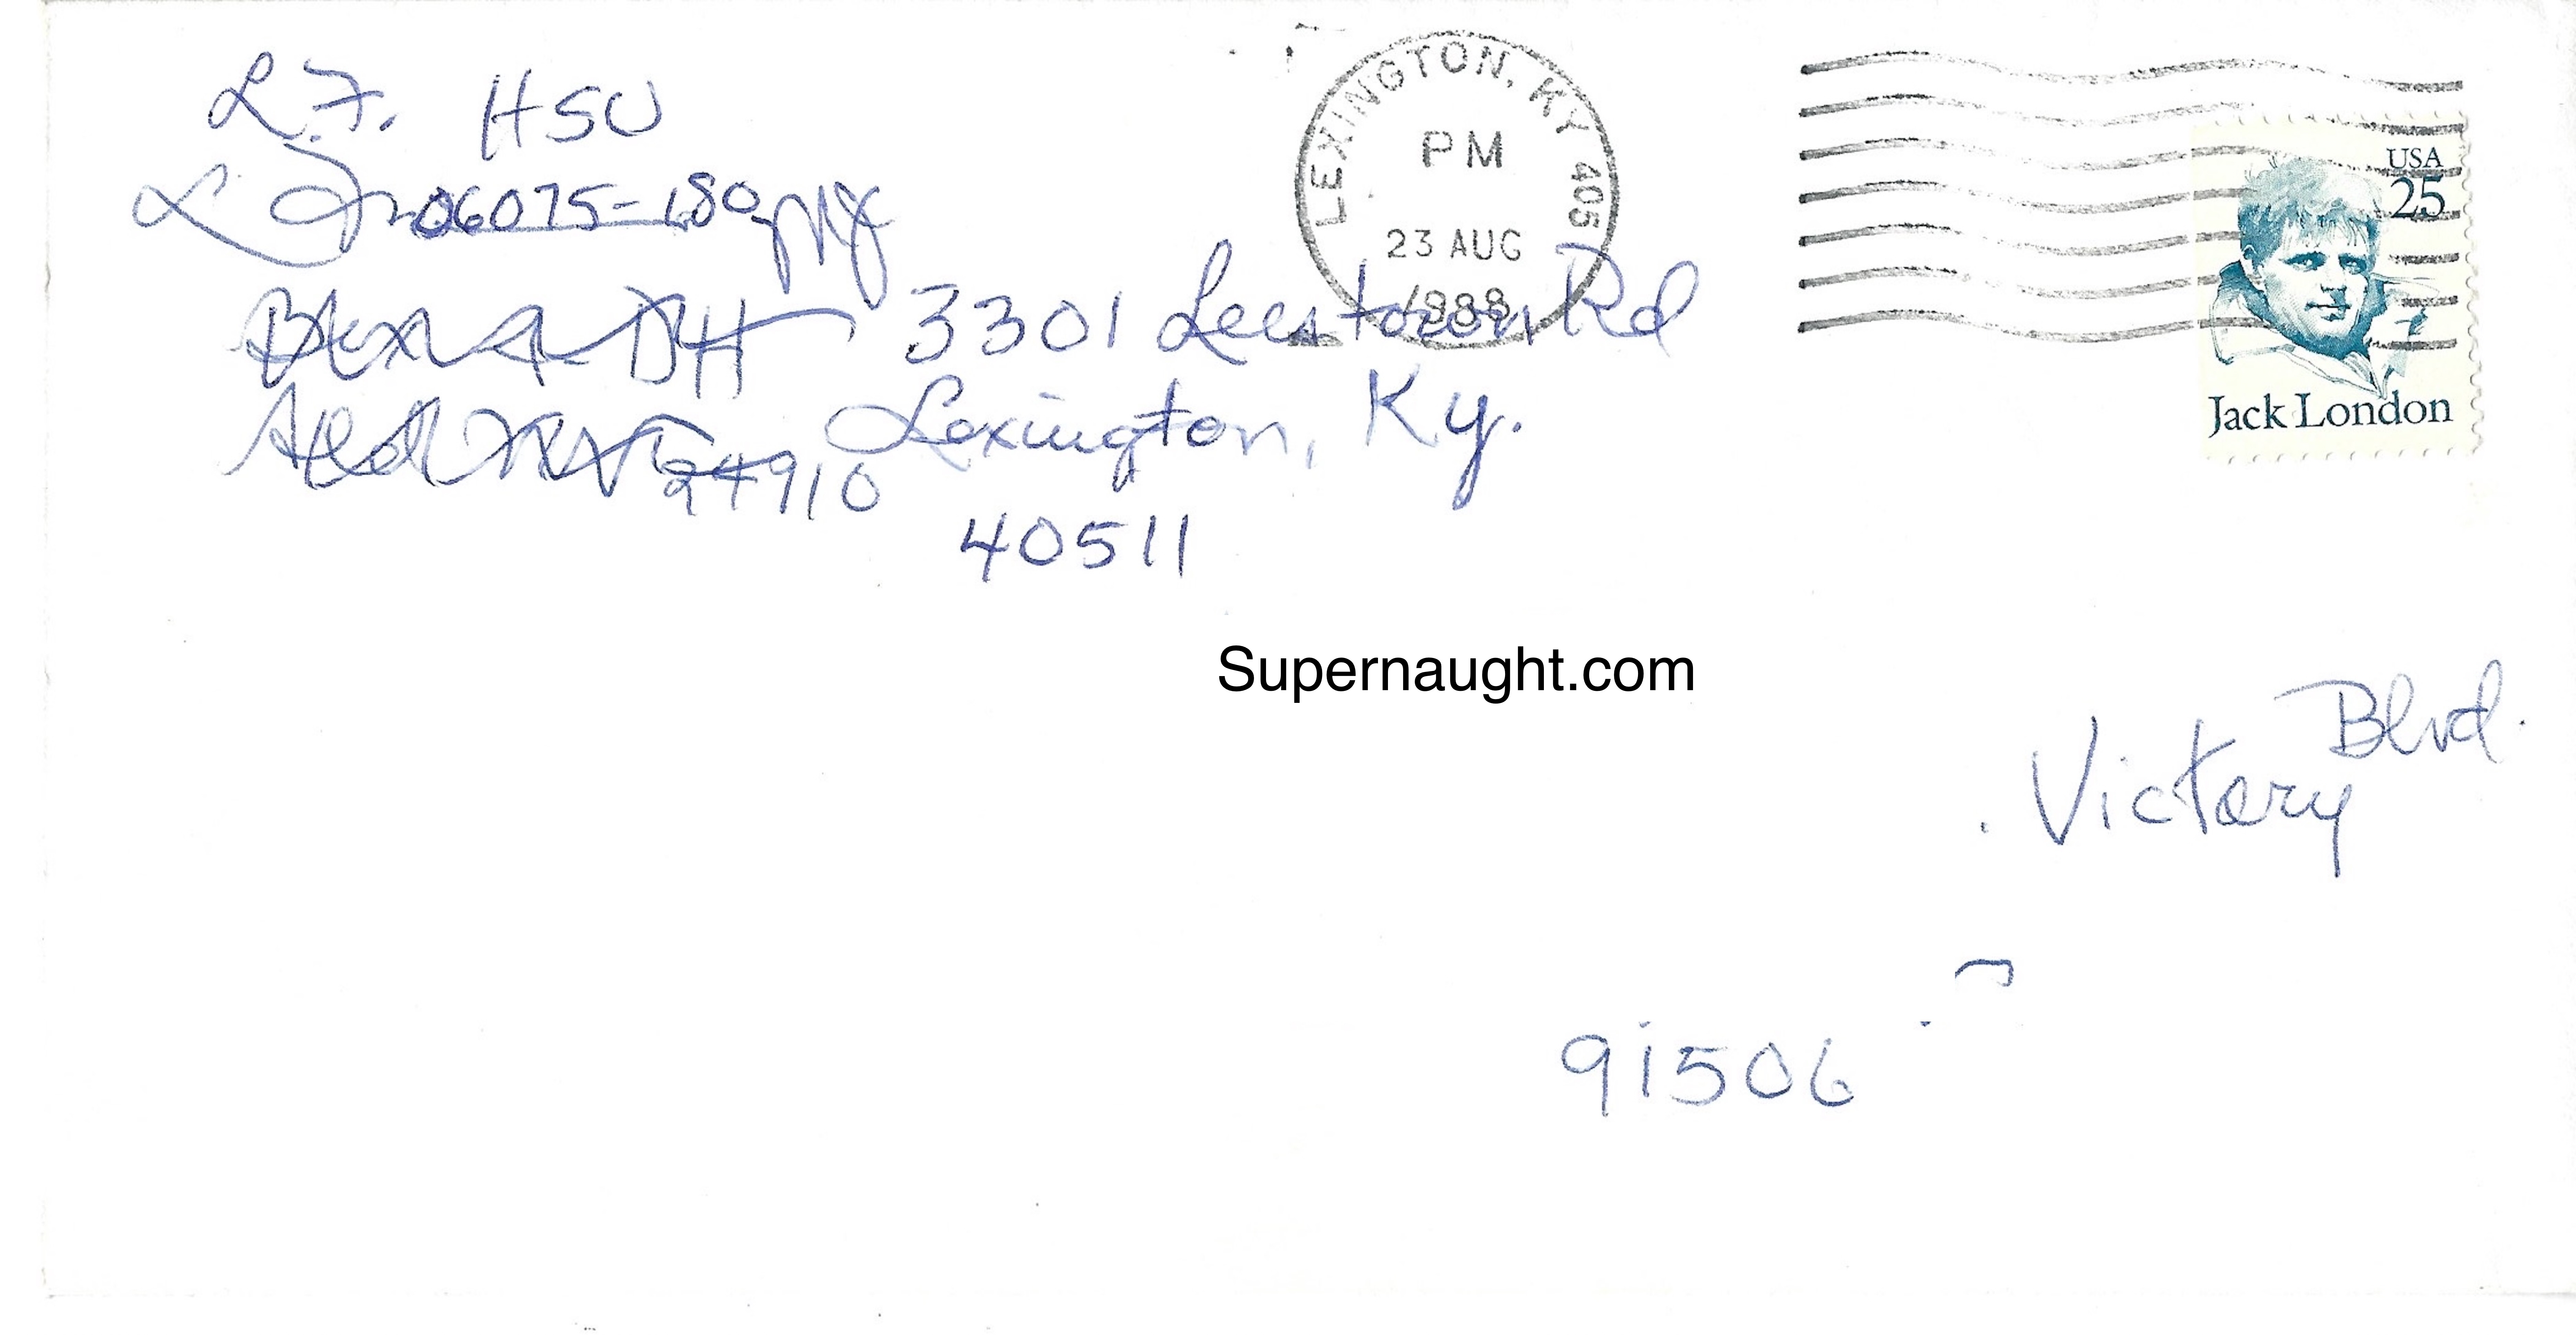 L.F. HSU
06075-180
3301 Leestown Rd
Lexington, Ky.
24910
40511
LEXINGTON, KY 405
PM
23 AUG
1988
USA
25
Jack London
Supernaught.com
Blvd.
Victory
91506